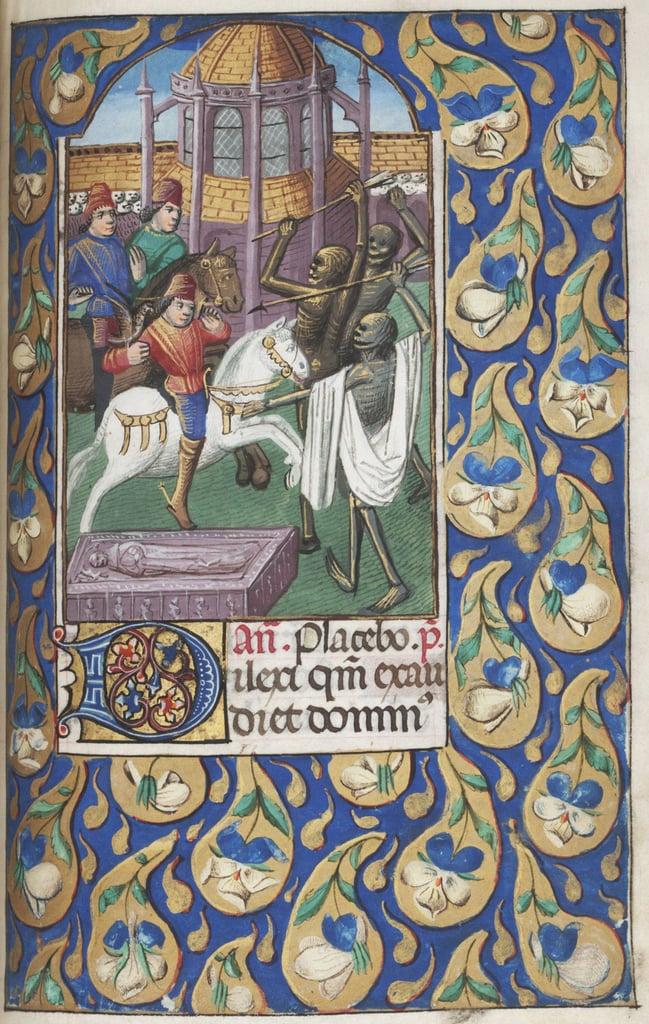 Añ. Placebo. p̄.
Dilexi qm̄ exau
diet domin⁹